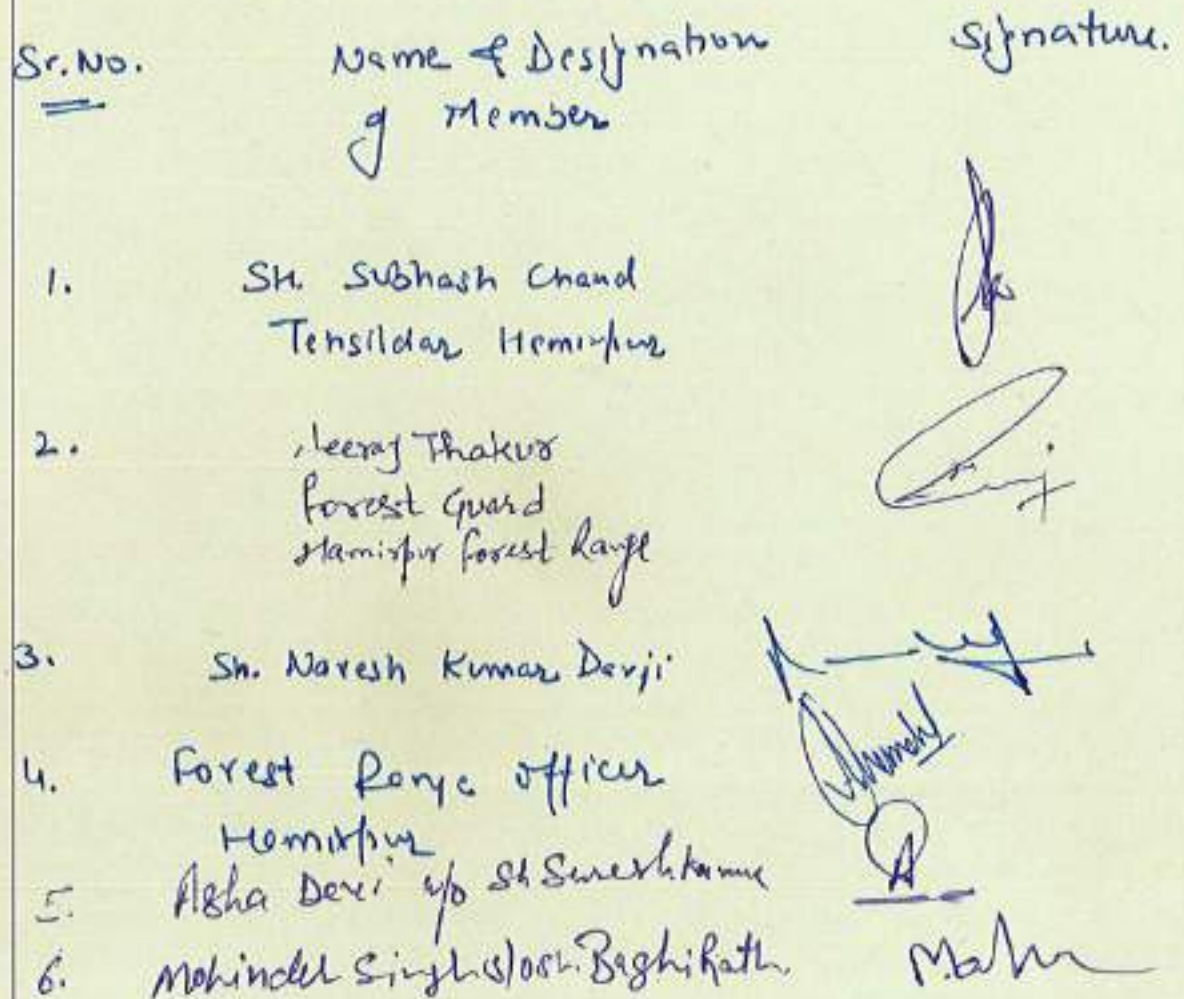 Sr.No. Name & Designation Signature.
of Member
1. SH. Subhash Chand
Tehsildar Hamirpur
2. Neeraj Thakur
Forest Guard
Hamirpur Forest Range
3. Sh. Naresh Kumar Darji
4. Forest Range Officer
Hamirpur
5. Asha Devi w/o Sh Suresh Kumar
6. Mohinder Singh s/o Sh. Baghi Rath.